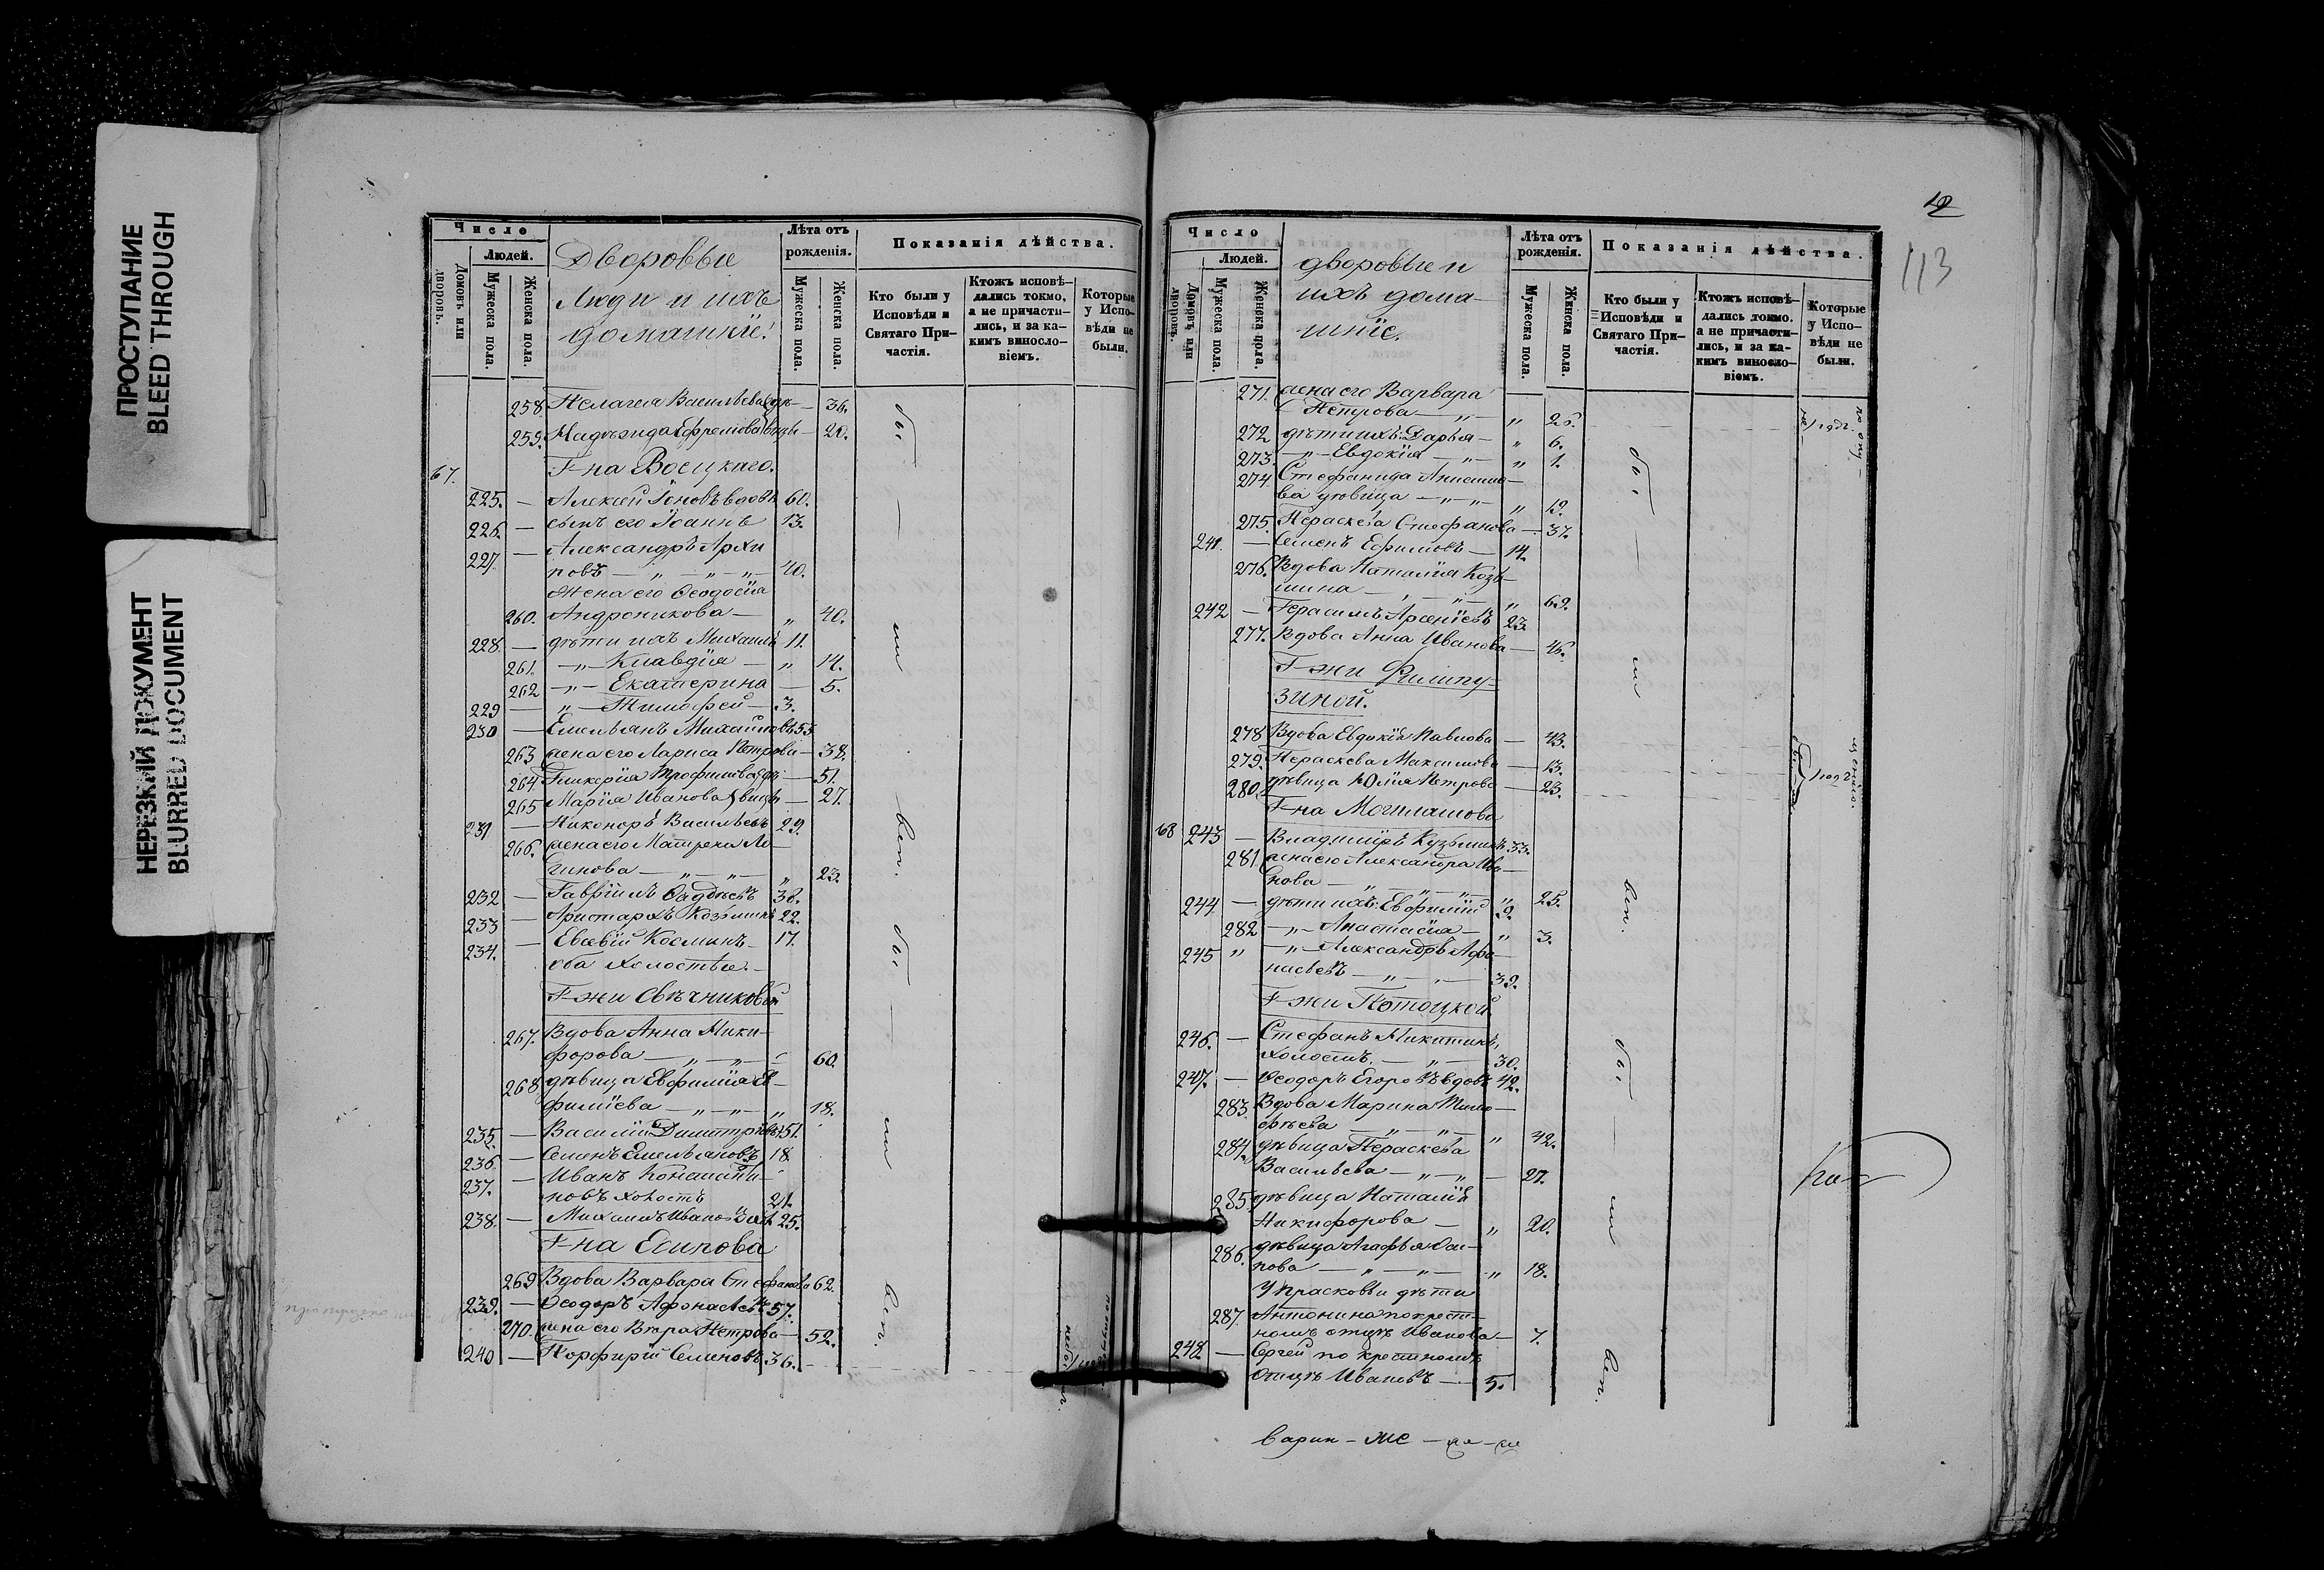 ПРОСТУПАНИЕ
BLEED THROUGH
НЕРЕЗКИЙ ДОКУМЕНТ
BLURRED DOCUMENT
Число
Людей.
Домовъ или дворовъ.
Мужеска пола.
Женска пола.
Дворовые
Люди и ихъ
домашніе.
Лѣта отъ
рожденія.
Мужеска пола.
Женска пола.
Показанія дѣйства.
Кто были у
Исповѣди и
Святаго При-
частія.
Ктожъ исповѣ-
дались токмо,
а не причасти-
лись, и за ка-
кимъ винасло-
віемъ.
Которые
у Испо-
вѣди не
были.
258 Пелагея Васильева — 36.
259. Надежда Ефремова — 20.
67. Г-на
225. — Алексей Іоновъ вдовъ 60.
226. — сынъ его Іоаннъ 13.
227. — Александръ Архи
повъ — „ — „ — „ — 40.
Жена его Ѳеодосія
260. Андроникова — „ 40.
228. — дѣти ихъ Михаилъ 11.
261. — „ — Клавдія — „ 14.
262 — „ — Екатерина — 5.
229 — „ — Тимофей — 3.
230 — Емельянъ Михайловъ 53
263 жена его Лариса Петрова — 38.
264. Гликерія Трофимова — 51.
265 Марія Иванова — 27.
231 — Никоноръ Васильевъ 29.
266. жена его Матрена Ло-
гинова — „ — „ — „ 23.
232 — Гавріилъ Фаддѣевъ 38.
233 — Аристархъ Козьминъ 22.
234. — Евсевій Косминъ — 17.
оба холостые. —
Г-жи Свѣчниковой
267. Вдова Анна Ники-
форова — „ — „ — 60.
268 дѣвица Евфимія
— „ — „ — „ 18.
235. — Василій Димитріевъ 51.
236. — Семенъ Емельяновъ 18.
237. — Иванъ Константи-
новъ холостъ 21.
238. — Михаилъ Ивановъ 25.
Г-на Есипова
269 Вдова Варвара Стефанова 62.
239. — Ѳеодоръ Афонасьевъ 57.
270. жена его Вѣра Петрова — 52.
240 — Порфирій Семеновъ 36. —
бы — ли — вси.
бы — ли — вси.
113
Число
Людей.
Домовъ или дворовъ.
Мужеска пола.
Женска пола.
дворовые и
ихъ дома-
шніе.
Лѣта отъ
рожденія.
Мужеска пола.
Женска пола.
Показанія дѣйства.
Кто были у
Исповѣди и
Святаго При-
частія.
Ктожъ исповѣ-
дались токмо.
а не причасти-
лись, и за ка-
кимъ винасло-
віемъ.
Которые
у Испо-
вѣди не
были.
271. жена его Варвара
Петрова — „ — „ 26.
272 дѣти ихъ: Дарья — „ 6.
273. — „ — Евдокія — „ — „ 1.
274. Стефанида Аниси-
ва дѣвица — „ — „ — „
275. Параскева Стефанова — 37.
241. — Семенъ Ефимовъ — 14.
276. Вдова Наталія Козь-
мина — „ — „ — „ 69.
242 — Герасимъ Арсеніевъ 23.
277. Вдова Анна Иванова — 46.
Г-жи
зиной.
278 Вдова Евдокія Павлова — 43.
279. Параскева Максимова — 13.
280. дѣвица Юлія Петрова — 23.
Г-на
68 243 — Владиміръ Кузьминъ 33.
281. жена его Александра Ива-
нова — „ — „ — „ 25.
244. — дѣти ихъ: Евфимій 9.
282 — „ — Анастасія — „ 3.
245 „ — „ — Александръ Афа-
насьевъ — „ — „ — 39.
Г-жи Потоцкой.
246. — Стефанъ Никитинъ,
холостъ. — „ — 30.
247. — Ѳеодоръ Егоровъ вдовъ 42.
283. Вдова Марина Тимо-
фѣева — „ — „ — „ 42.
284. дѣвица Параскева
Васильева — „ — „ — 27.
285. дѣвица Наталія
Никифорова — „ 20.
286. дѣвица Агафья Оси-
пова — „ — „ — „ 18.
У прасковьи дѣти
287. Антонина по крест-
номъ отцѣ Иванова — 7.
248 — Сергей по крестномъ
Отцѣ Ивановъ — 5.
бы — ли — вси.
бы — ли — вси.